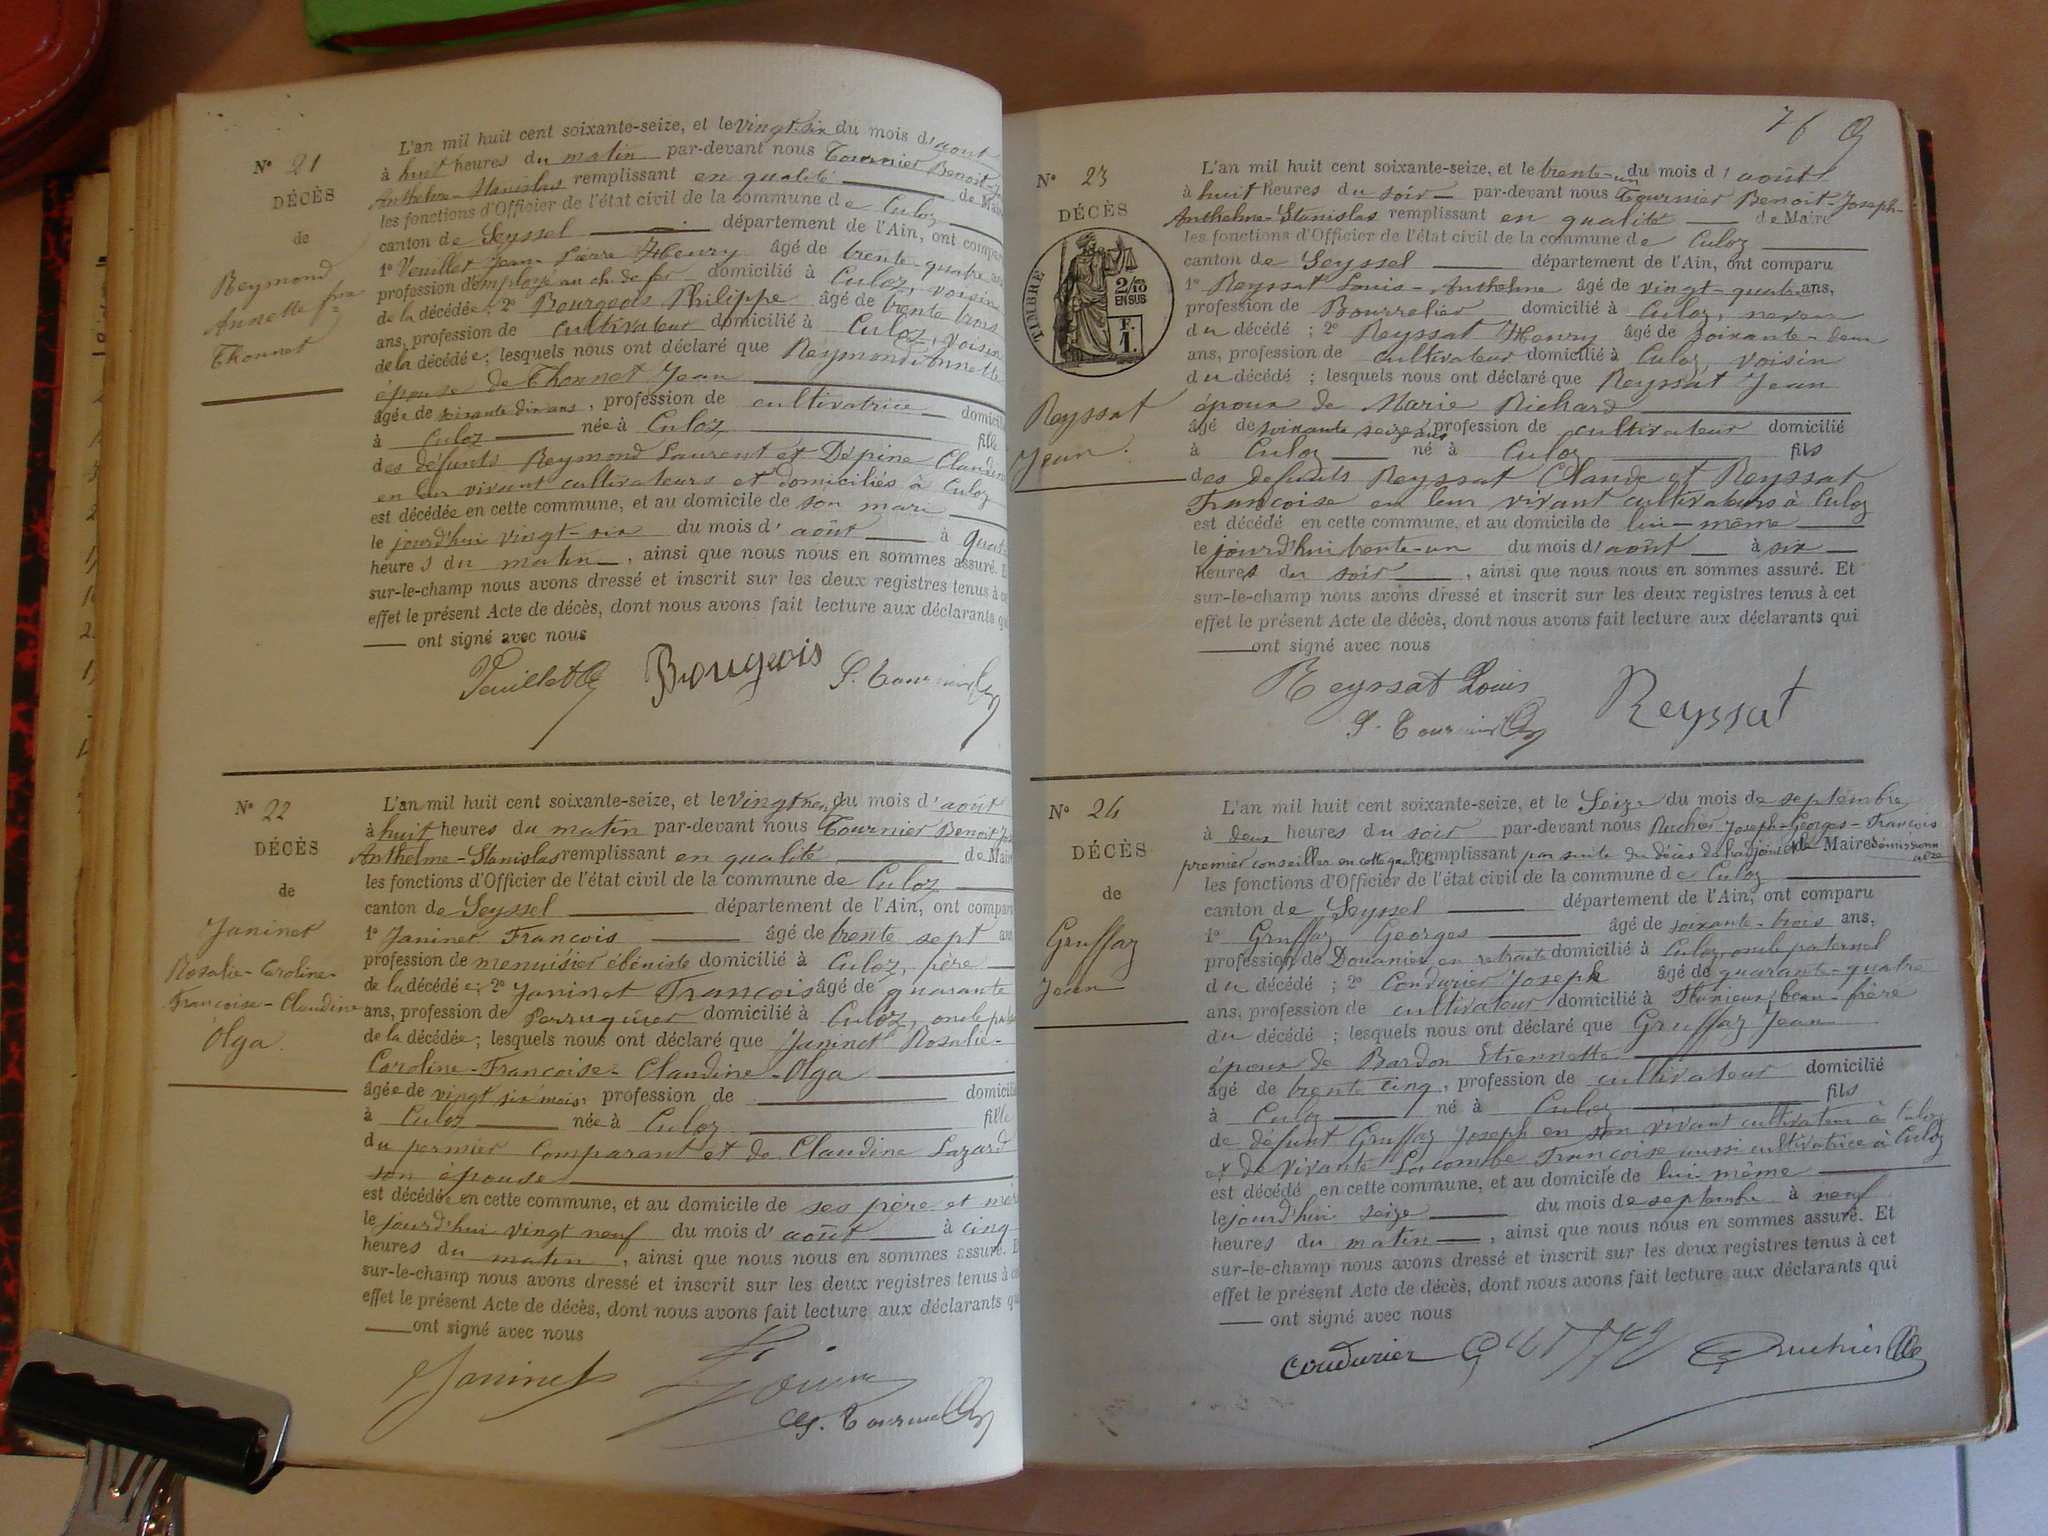 N° 21
DÉCÈS
de
Reymond
Annette
Thonnet
L'an mil huit cent soixante-seize, et le vingt-six du mois d'août
à huit heures du matin par-devant nous Tournier Benoit-
Anthelme-Stanislas remplissant en qualité de Mai
les fonctions d'Officier de l'état civil de la commune de Culoz
canton de Seyssel département de l'Ain, ont compar
1° Veuillet Jean Pierre Henry âgé de trente-quatre
profession d'employé au ch. de fer domicilié à Culoz, voisin
de la décédée; 2° Bourgeois Philippe âgé de trente trois
ans, profession de cultivateur domicilié à Culoz, voisin
de la décédée; lesquels nous ont déclaré que Reymond Annette
épouse de Thonnet Jean
âgée de soixante dix ans, profession de cultivatrice domicili
à Culoz née à Culoz fille
des défunts Reymond Laurent et Dépine Claudine
en leur vivant cultivateurs et domiciliés à Culoz
est décédée en cette commune, et au domicile de son mari
le jourd'hui vingt-six du mois d'août à quat
heures du matin, ainsi que nous nous en sommes assuré. E
sur-le-champ nous avons dressé et inscrit sur les deux registres tenus à ce
effet le présent Acte de décès, dont nous avons fait lecture aux déclarants qu
ont signé avec nous
Veuillet Bourgeois S. Tournier
N° 22
DÉCÈS
de
Janinet
Rosalie-Caroline-
Françoise-Claudine
Olga.
L'an mil huit cent soixante-seize, et le vingt neuf du mois d'août
à huit heures du matin par-devant nous Tournier Benoit Jos
Anthelme-Stanislas remplissant en qualité de Mair
les fonctions d'Officier de l'état civil de la commune de Culoz
canton de Seyssel département de l'Ain, ont compar
1° Janinet François âgé de trente sept ans
profession de menuisier ébéniste domicilié à Culoz, père
de la décédée; 2° Janinet François âgé de quarante
ans, profession de Perruquier domicilié à Culoz, oncle
de la décédée; lesquels nous ont déclaré que Janinet Rosalie-
Caroline-Françoise-Claudine-Olga
âgée de vingt six mois, profession de domicili
à Culoz née à Culoz fille
du permier comparant et de Claudine Lazard
son épouse
est décédée en cette commune, et au domicile de ses père et mère
le jourd'hui vingt neuf du mois d'août à cinq
heures du matin, ainsi que nous nous en sommes assuré. E
sur-le-champ nous avons dressé et inscrit sur les deux registres tenus à ce
effet le présent Acte de décès, dont nous avons fait lecture aux déclarants qu
ont signé avec nous
Janinet
S. Tournier
76
N° 23
DÉCÈS
TIMBRE
2/10
EN SUS
F.
1.
Reyssat
Jean.
L'an mil huit cent soixante-seize, et le trente-un du mois d'août
à huit heures du soir par-devant nous Tournier Benoit-Joseph-
Anthelme-Stanislas remplissant en qualité de Maire
les fonctions d'Officier de l'état civil de la commune de Culoz
canton de Seyssel département de l'Ain, ont comparu
1° Reyssat Louis-Anthelme âgé de vingt-quatre ans,
profession de Bourrelier domicilié à Culoz, neveu
du décédé ; 2° Reyssat Henry âgé de soixante-deux
ans, profession de cultivateur domicilié à Culoz, voisin
du décédé ; lesquels nous ont déclaré que Reyssat Jean
époux de Marie Richard
âgé de soixante seize ans, profession de cultivateur domicilié
à Culoz né à Culoz fils
des défunts Reyssat Claude et Reyssat
Françoise en leur vivant cultivateurs à Culoz
est décédé en cette commune, et au domicile de lui-même
le jourd'hui trente-un du mois d'août à six
heures du soir, ainsi que nous nous en sommes assuré. Et
sur-le-champ nous avons dressé et inscrit sur les deux registres tenus à cet
effet le présent Acte de décès, dont nous avons fait lecture aux déclarants qui
ont signé avec nous
Reyssat Louis Reyssat
S. Tournier
N° 24
DÉCÈS
de
Gruffaz
Jean
L'an mil huit cent soixante-seize, et le Seize du mois de septembre
à deux heures du soir par-devant nous Joseph-Georges-François
premier conseiller en cette qualité remplissant par suite du décès de l'adjoint et de Maire démissionnaire
les fonctions d'Officier de l'état civil de la commune de Culoz
canton de Seyssel département de l'Ain, ont comparu
1° Gruffaz Georges âgé de soixante-trois ans,
profession de Douanier en retraite domicilié à Culoz, oncle paternel
du décédé ; 2° Coudurier Joseph âgé de quarante-quatre
ans, profession de cultivateur domicilié à Flaxieux, beau-frère
du décédé ; lesquels nous ont déclaré que Gruffaz Jean
époux de Bardon Etiennette
âgé de trente cinq, profession de cultivateur domicilié
à Culoz né à Culoz fils
de défunt Gruffaz Joseph en son vivant cultivateur à Culoz
et de vivante Lacombe Françoise aussi cultivatrice à Culoz
est décédé en cette commune, et au domicile de lui même
le jourd'hui seize du mois de septembre à neuf
heures du matin, ainsi que nous nous en sommes assuré. Et
sur-le-champ nous avons dressé et inscrit sur les deux registres tenus à cet
effet le présent Acte de décès, dont nous avons fait lecture aux déclarants qui
ont signé avec nous
Coudurier